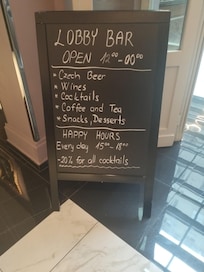 LOBBY BAR
OPEN 12⁰⁰-00⁰⁰
* Czech Beer
* Wines
* Cocktails
* Coffee and Tea
* Snacks, Desserts
HAPPY HOURS
Every day 15⁰⁰-18⁰⁰
-20% for all cocktails